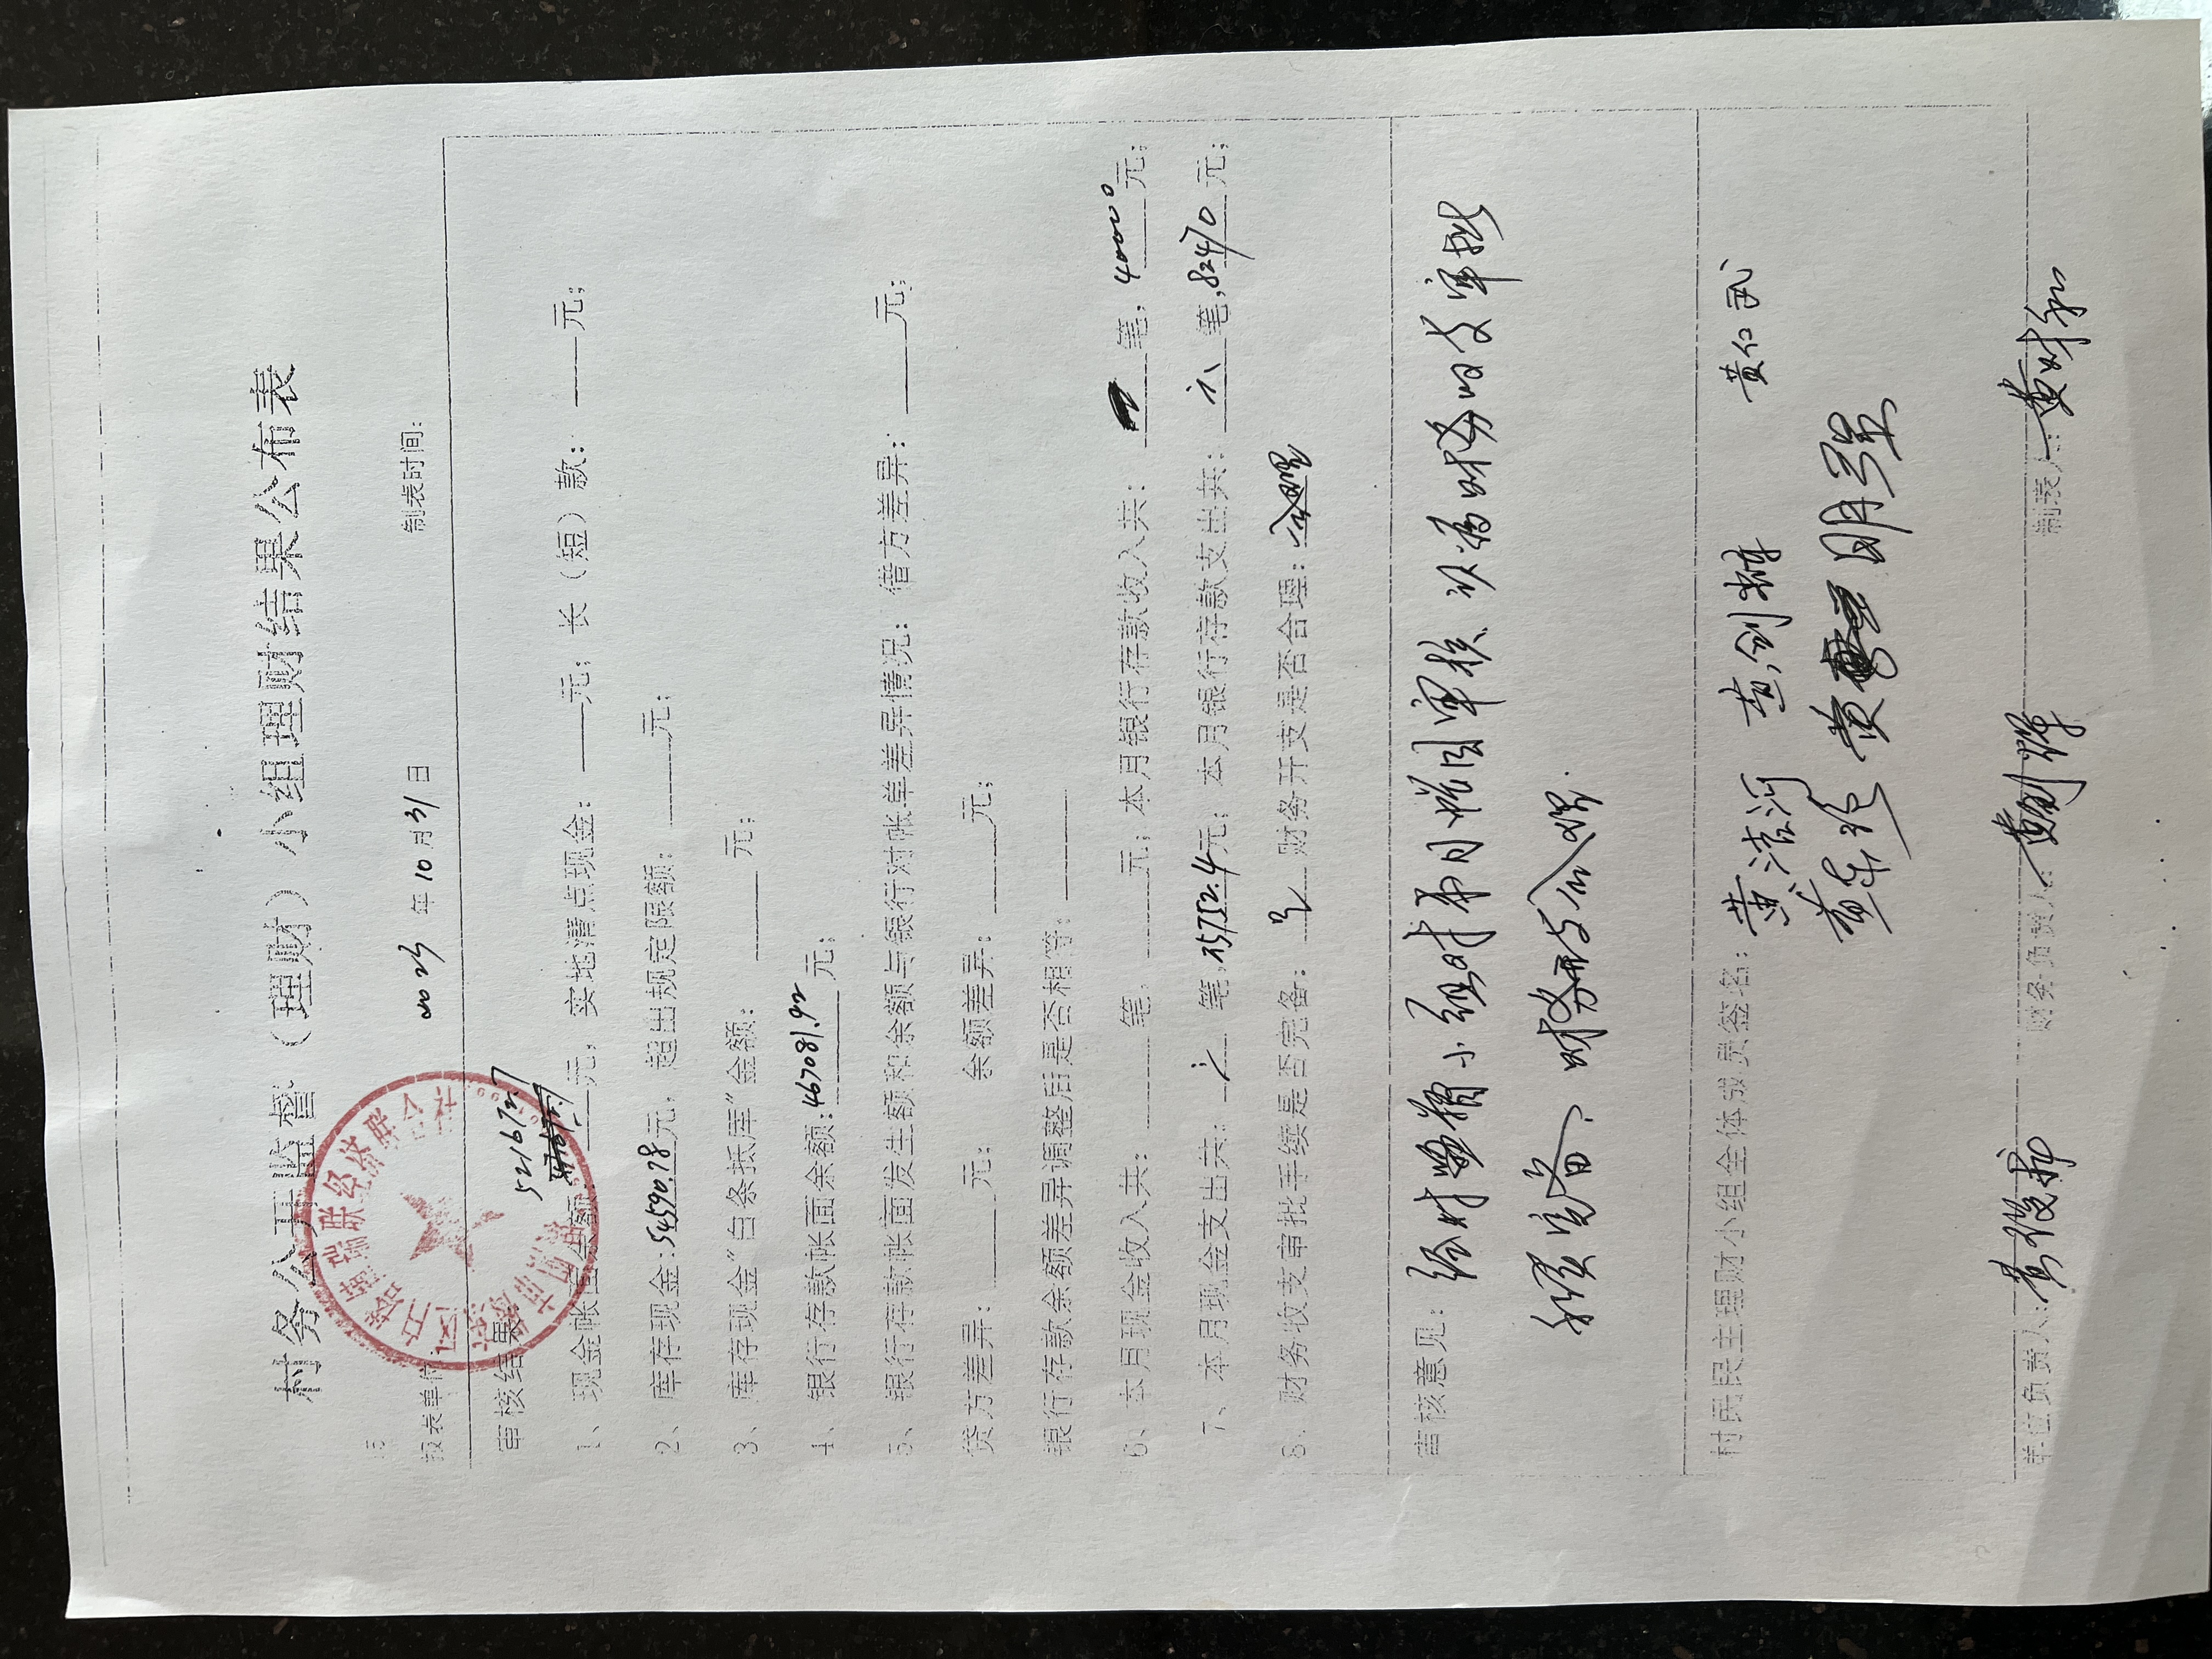 村务公开监督（理财）小组理财结果公布表
报表单位 2023 年 10 月 31 日 制表时间：
审核结果
1、现金帐面余额 521672.7 元，实地清点现金：元；长（短）款：元；
2、库存现金：54590.78元，超出规定限额：元；
3、库存现金“白条抵库”金额：元；
4、银行存款帐面余额：467081.92元；
5、银行存款帐面发生额和余额与银行对帐单差异情况：借方差异：元；
贷方差异：元； 余额差异：元；
银行存款余额差异调整后是否相等：
6、本月现金收入共：笔，元；本月银行存款收入共：笔，40000元；
7、本月现金支出共：笔，元；本月银行存款支出共：六笔，82470元；
8、财务收支审批手续是否完备：是 财务开支是否合理：合理
审核意见：经村监督小组对本月帐目审核 认为财务收支审批
手续完备、财务开支合理.
村民民主理财小组全体成员签名：黄清河 黄创辉 黄仁武
黄明强
单位负责人： 财务负责人：黄创辉 制表人：